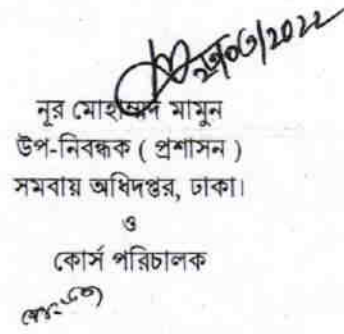 ২৭/০৩/2022
নূর মোহাম্মদ মামুন
উপ-নিবন্ধক ( প্রশাসন )
সমবায় অধিদপ্তর, ঢাকা।
ও
কোর্স পরিচালক